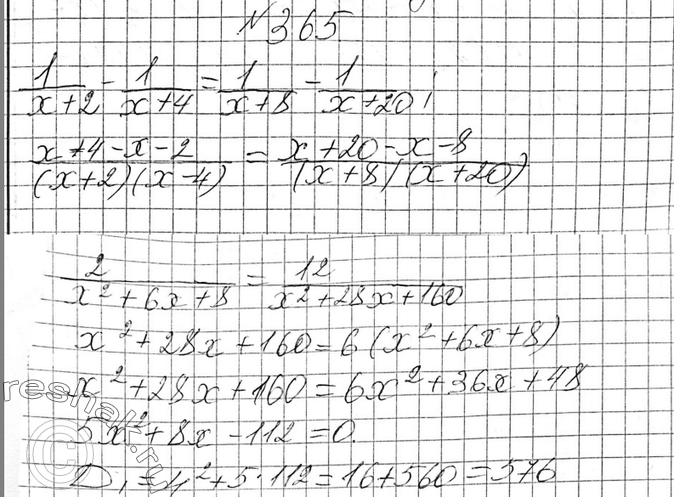 №365
1/(x+2) - 1/(x+4) = 1/(x+8) - 1/(x+20);
(x+4-x-2)/((x+2)(x-4)) = (x+20-x-8)/((x+8)(x+20))
2/(x²+6x+8) = 12/(x²+28x+160)
x²+28x+160=6(x²+6x+8)
x²+28x+160=6x²+36x+48
5x²+8x-112=0.
D₁=4²+5·112=16+560=576
reshak.ru